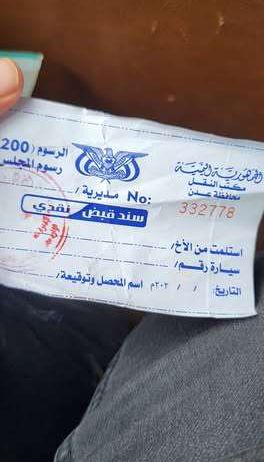 الجمهورية اليمنية
مكتب النقل
محافظة عدن
الرسوم (200
رسوم المجلس
No: مديرية /
332778
سند قبض نقدي
استلمت من الأخ/
سيارة رقم/
التاريخ: / / ٢٠٢م اسم المحصل وتوقيعة/